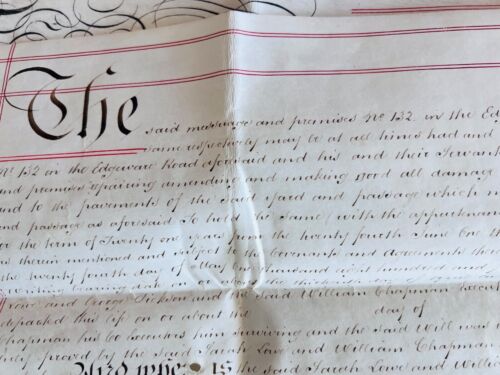 The said messuage and premises No 132 in the Edg
same respectively may be at all times had and
No 132 in the Edgeware Road aforesaid and his and their Servants
and premises repairing amending and making good all damage
and to the pavements of the said Yard and passage which m
and passage as aforesaid To hold the same (with the appurtenan
for the term of Twenty one Years from the twenty fourth June One th
as therein mentioned and subject to the Covenants and Agreements ther
the twenty fourth day of May One thousand eight hundred and
Writing bearing date on or about the
Lowe and George Dickson and the said William Chapman Execut
departed this life on or about the day of
Chapman his Co Executors him surviving and the said Will was
duly proved by the said Sarah Lowe and William Chapman
is the said Sarah Lowe and William